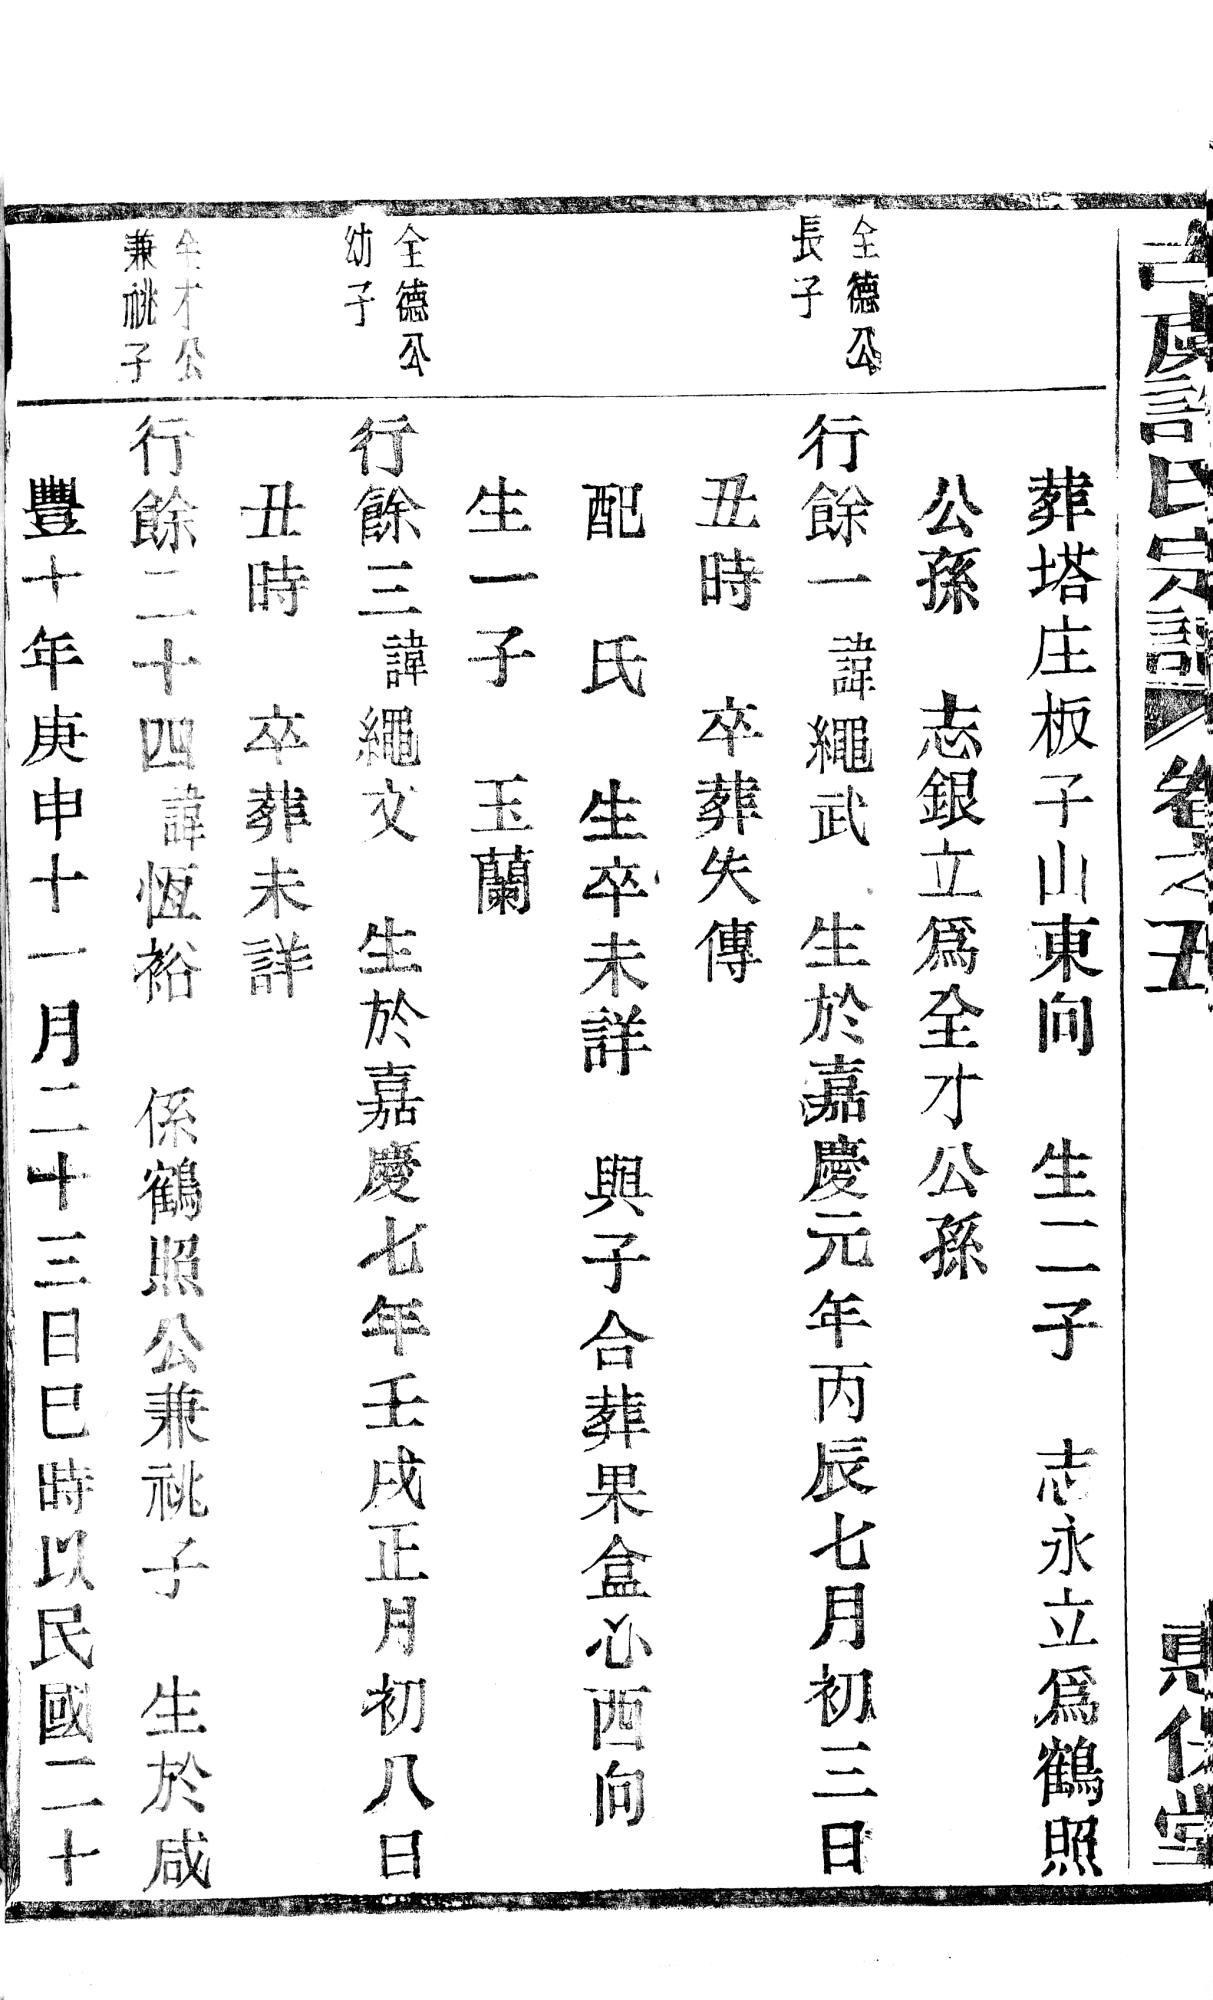 古虞許氏宗譜 卷之五 惠保堂
葬塔庄板子山東向 生二子 志永立爲鶴照
公孫 志銀立爲全才公孫
全德公
長子
行餘一諱繩武 生於嘉慶元年丙辰七月初三日
丑時 卒葬失傳
配 氏 生卒未詳 與子合葬果盒心西向
生一子 玉蘭
全德公
幼子
行餘三諱繩文 生於嘉慶七年壬戌正月初八日
丑時 卒葬未詳
全才公
兼祧子
行餘二十四諱恆裕 係鶴照公兼祧子 生於咸
豐十年庚申十一月二十三日巳時以民國二十